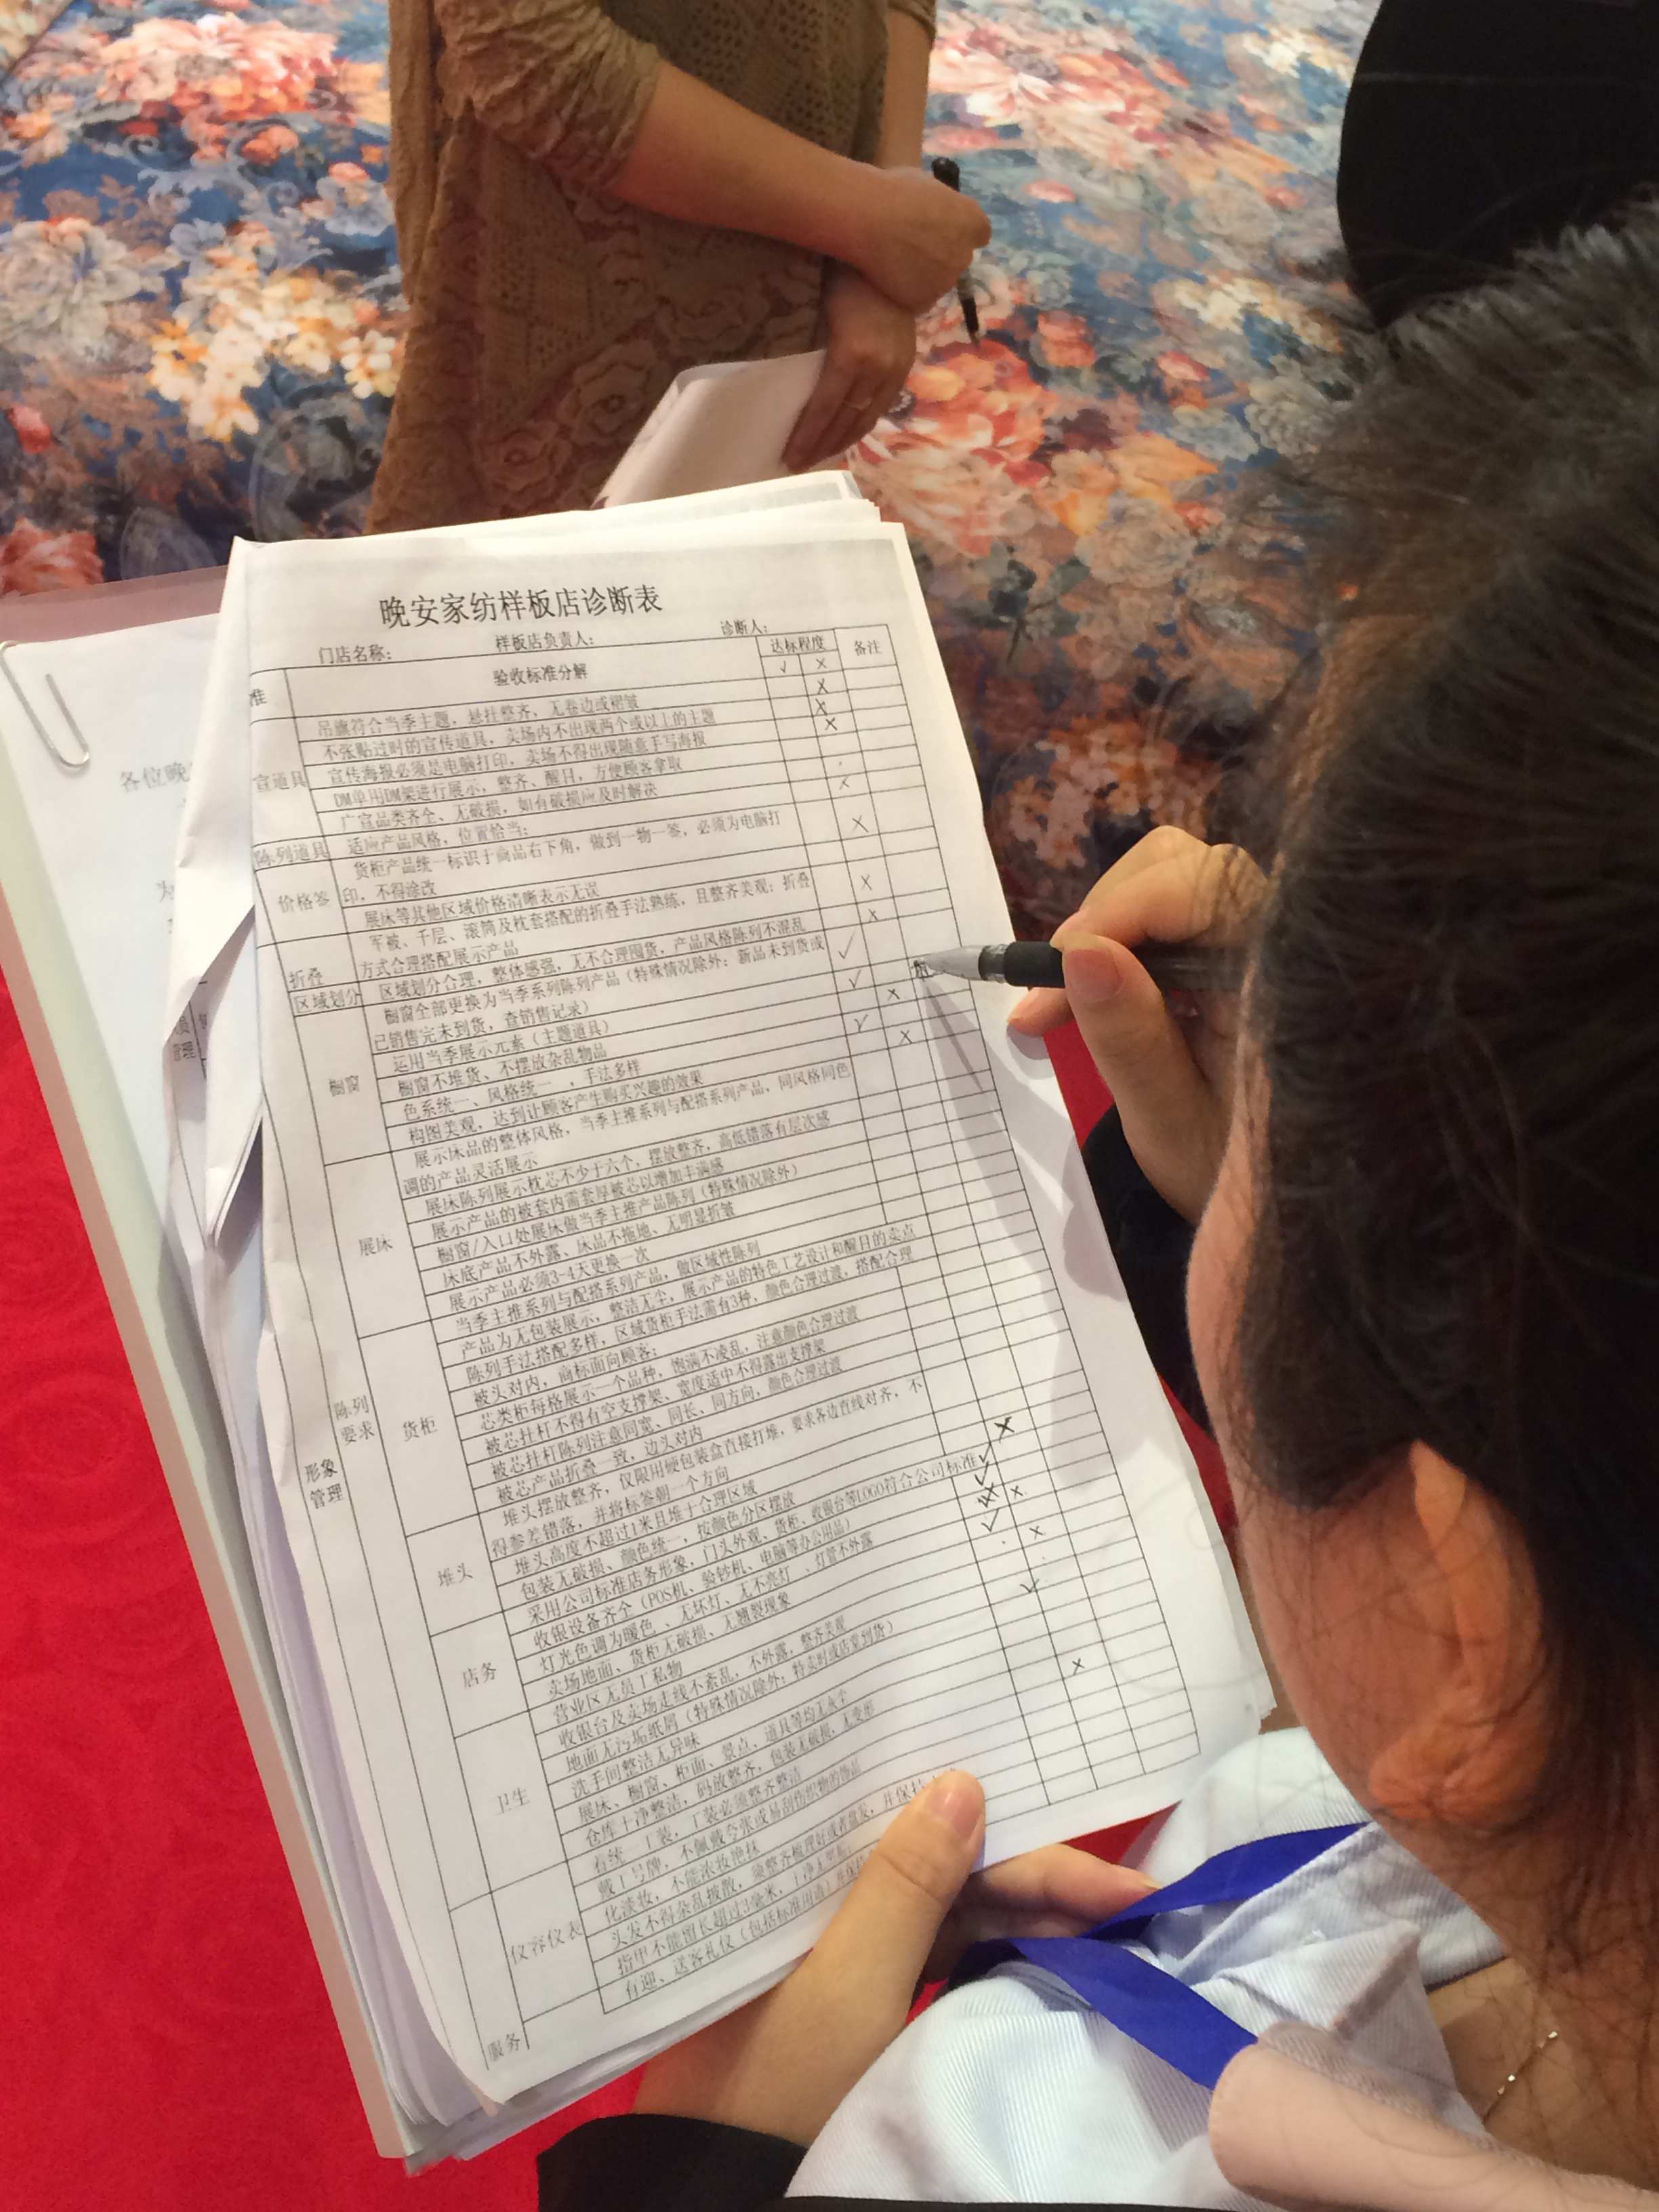 晚安家纺样板店诊断表
门店名称: 样板店负责人: 诊断人:
准 验收标准分解 达标程度 备注
√ ×
宣道具 吊旗符合当季主题，悬挂整齐，无卷边或褶皱 ×
不张贴过时的宣传道具，卖场内不出现两个或以上的主题 ×
宣传海报必须是电脑打印，卖场不得出现随意手写海报 ×
DM单用DM架进行展示，整齐、醒目，方便顾客拿取
广宣品类齐全、无破损，如有破损应及时解决 ×
陈列道具 适应产品风格，位置恰当；
价格签 货柜产品统一标识于商品右下角，做到一物一签，必须为电脑打 ×
印，不得涂改
展床等其他区域价格清晰表示无误
折叠 军被、千层、滚筒及枕套搭配的折叠手法熟练，且整齐美观；折叠 ×
方式合理搭配展示产品
区域划分 区域划分合理，整体感强，无不合理囤货，产品风格陈列不混乱 ×
橱窗 橱窗全部更换为当季系列陈列产品（特殊情况除外：新品未到货或 √
已销售完未到货，查销售记录）
运用当季展示元素（主题道具） √
橱窗不堆货、不摆放杂乱物品 ×
色系统一、风格统一，手法多样 √
构图美观，达到让顾客产生购买兴趣的效果 ×
形象管理 陈列要求 展床 展示床品的整体风格，当季主推系列与配搭系列产品，同风格同色
调的产品灵活展示
展床陈列展示枕芯不少于六个，摆放整齐，高低错落有层次感
展示产品的被套内需套厚被芯以增加丰满感
橱窗/入口处展床做当季主推产品陈列（特殊情况除外）
床底产品不外露、床品不拖地、无明显折皱
展示产品必须3-4天更换一次
货柜 当季主推系列与配搭系列产品，做区域性陈列
产品为无包装展示，整洁无尘，展示产品的特色工艺设计和醒目的卖点
陈列手法搭配多样，区域货柜手法需有3种，颜色合理过渡，搭配合理
被头对内，商标面向顾客；
芯类柜每格展示一个品种，饱满不凌乱，注意颜色合理过渡
被芯挂杆不得有空支撑架、宽度适中不得露出支撑架
被芯挂杆陈列注意同宽、同长、同方向，颜色合理过渡
被芯产品折叠一致，边头对内
堆头 堆头摆放整齐，仅限用硬包装盒直接打堆，要求各边直线对齐，不
得参差错落，并将标签朝一个方向
堆头高度不超过1米且堆于合理区域
包装无破损、颜色统一，按颜色分区摆放
店务 采用公司标准店务形象，门头外观、货柜、收银台等LOGO符合公司标准
收银设备齐全（POS机、验钞机、电脑等办公用品）
灯光色调为暖色、无坏灯、无不亮灯、灯管不外露
卖场地面、货柜无破损、无翘裂现象
营业区无员工私物
收银台及卖场走线不紊乱，不外露，整齐美观
卫生 地面无污垢纸屑（特殊情况除外：特卖时或店堂到货）
洗手间整洁无异味
展床、橱窗、柜面、景点、道具等均无灰尘
仓库干净整洁，码放整齐，包装无破损，无变形
仪容仪表 着统一工装，工装必须整齐整洁
戴工号牌，不佩戴夸张或易刮伤织物的饰品
化淡妆，不能浓妆艳抹
头发不得朵乱披散，须整齐梳理好或者盘发，并保持
指甲不能留长超过3毫米，干净
服务 有迎、送客礼仪（包括标准用语）
各位晚